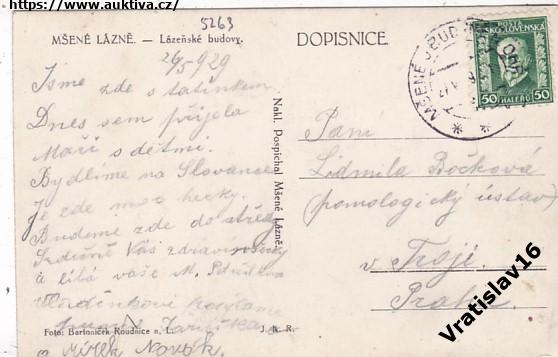 https://www.auktiva.cz/
5263
MŠENÉ LÁZNĚ. — Lázeňské budovy.
DOPISNICE.
26/5 929
Jsme zde s tatínkem
Dnes sem přijela
Maří s dětmi.
Bydlíme na Slovance
Je zde moc hezky.
Budeme zde do středy
Srdečně Vás zdraví
a líbá vaše M.
Mirek Novák.
Foto: Bartoníček Roudnice n. L.
J. k. R.
Nakl. Pospíchal Mšené Lázně.
POŠTA
ČESKOSLOVENSKÁ
50 HALÉŘŮ 50
MŠENÉ
Paní
Lidmila Bočková
(pomologický ústav)
v Troji.
Praha
Vratislav16